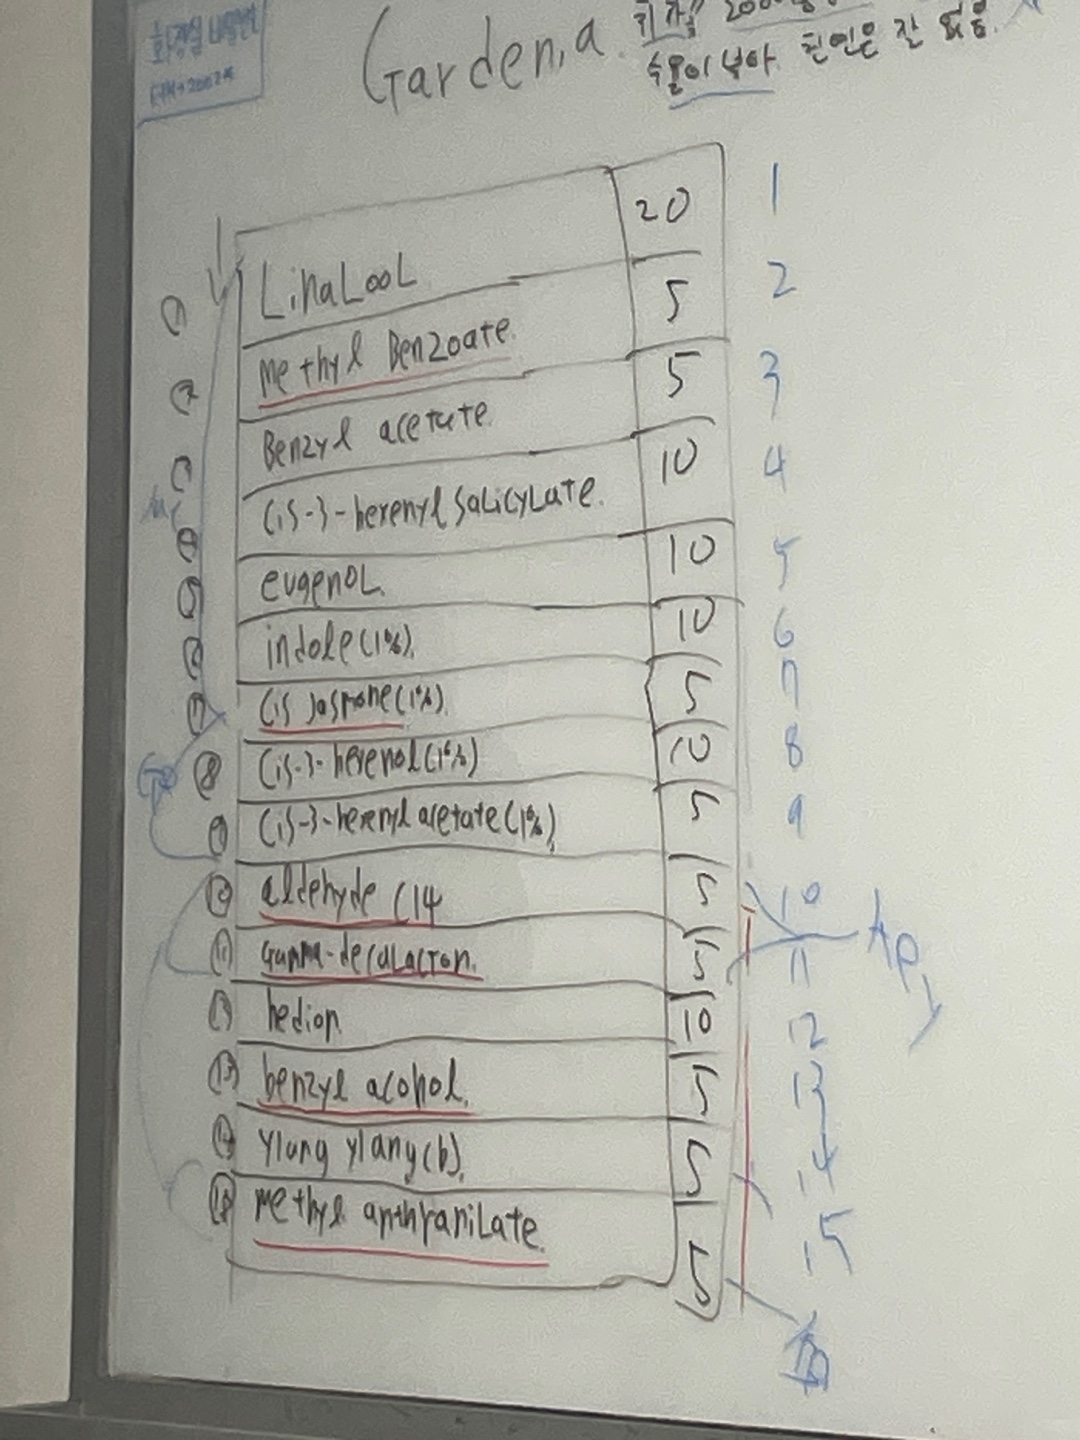 화장실 비밀번
Gardenia.
수용이 부아 흰면은 잘 되음.
LinaLooL 20 1
① Methyl Benzoate. 5 2
② Benzyl acetate. 5 3
Cis-3-hexenyl SaLicyLate. 10 4
④ eugenoL. 10 5
⑤ indole(1%). 10 6
⑥ Cis Jasmone(1%). 5 7
⑦ Cis-3-hexenol(1%) 10 8
⑧ Cis-3-hexenyl acetate(1%) 5 9
⑨ aldehyde C14 5 10
⑩ Gamma-decaLacton. 5 11
⑪ hedion 10 12
benzyl acohol. 5 13
⑬ Ylang ylang(b). 5 14
⑭ methyl anthraniLate. 5 15
⑮